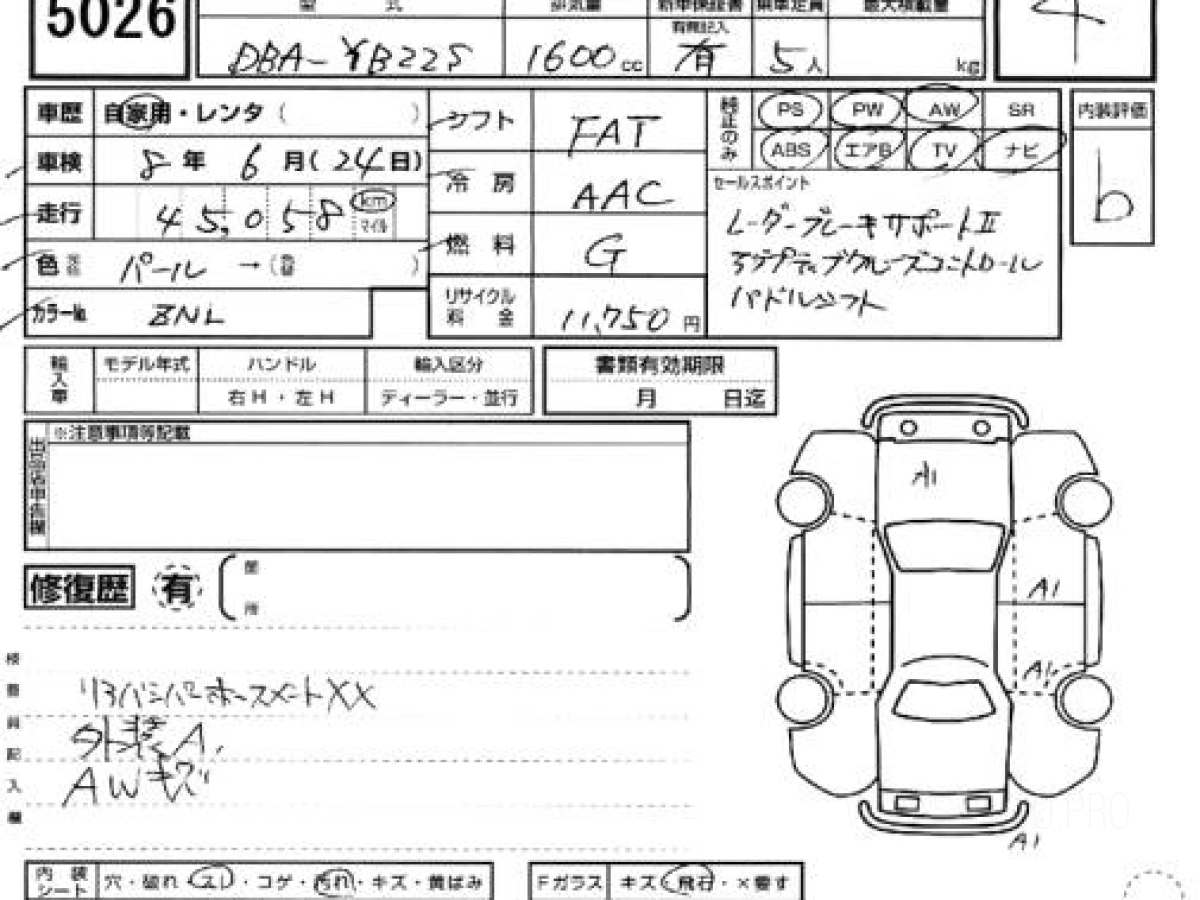 5026
型 式 排気量 新車保証書 乗車定員 最大積載量
有無記入
DBA-YB22S 1600cc 有 5人 kg
4
車歴 自家用・レンタ( )
車検 8年 6月(24日)
走行 45,058 km マイル
色 パール →( )
カラー№ ZNL
シフト FAT
冷房 AAC
燃料 G
リサイクル料金 11,750円
純正のみ PS PW AW SR
ABS エアB TV ナビ
セールスポイント
レーダーブレーキサポートⅡ
アダプティブクルーズコントロール
パドルシフト
内装評価
b
輸入車 モデル年式 ハンドル 輸入区分
右H・左H ディーラー・並行
書類有効期限
月 日迄
出品店申告欄
※注意事項等記載
修復歴 有
箇所
検査員記入欄
リアバンパーホースメントXX
外装A,
AWキズ
A1
A1
A1
A1
内装シート 穴・破れ・スレ・コゲ・汚れ・キズ・黄ばみ
Fガラス キズ・飛石・×要す